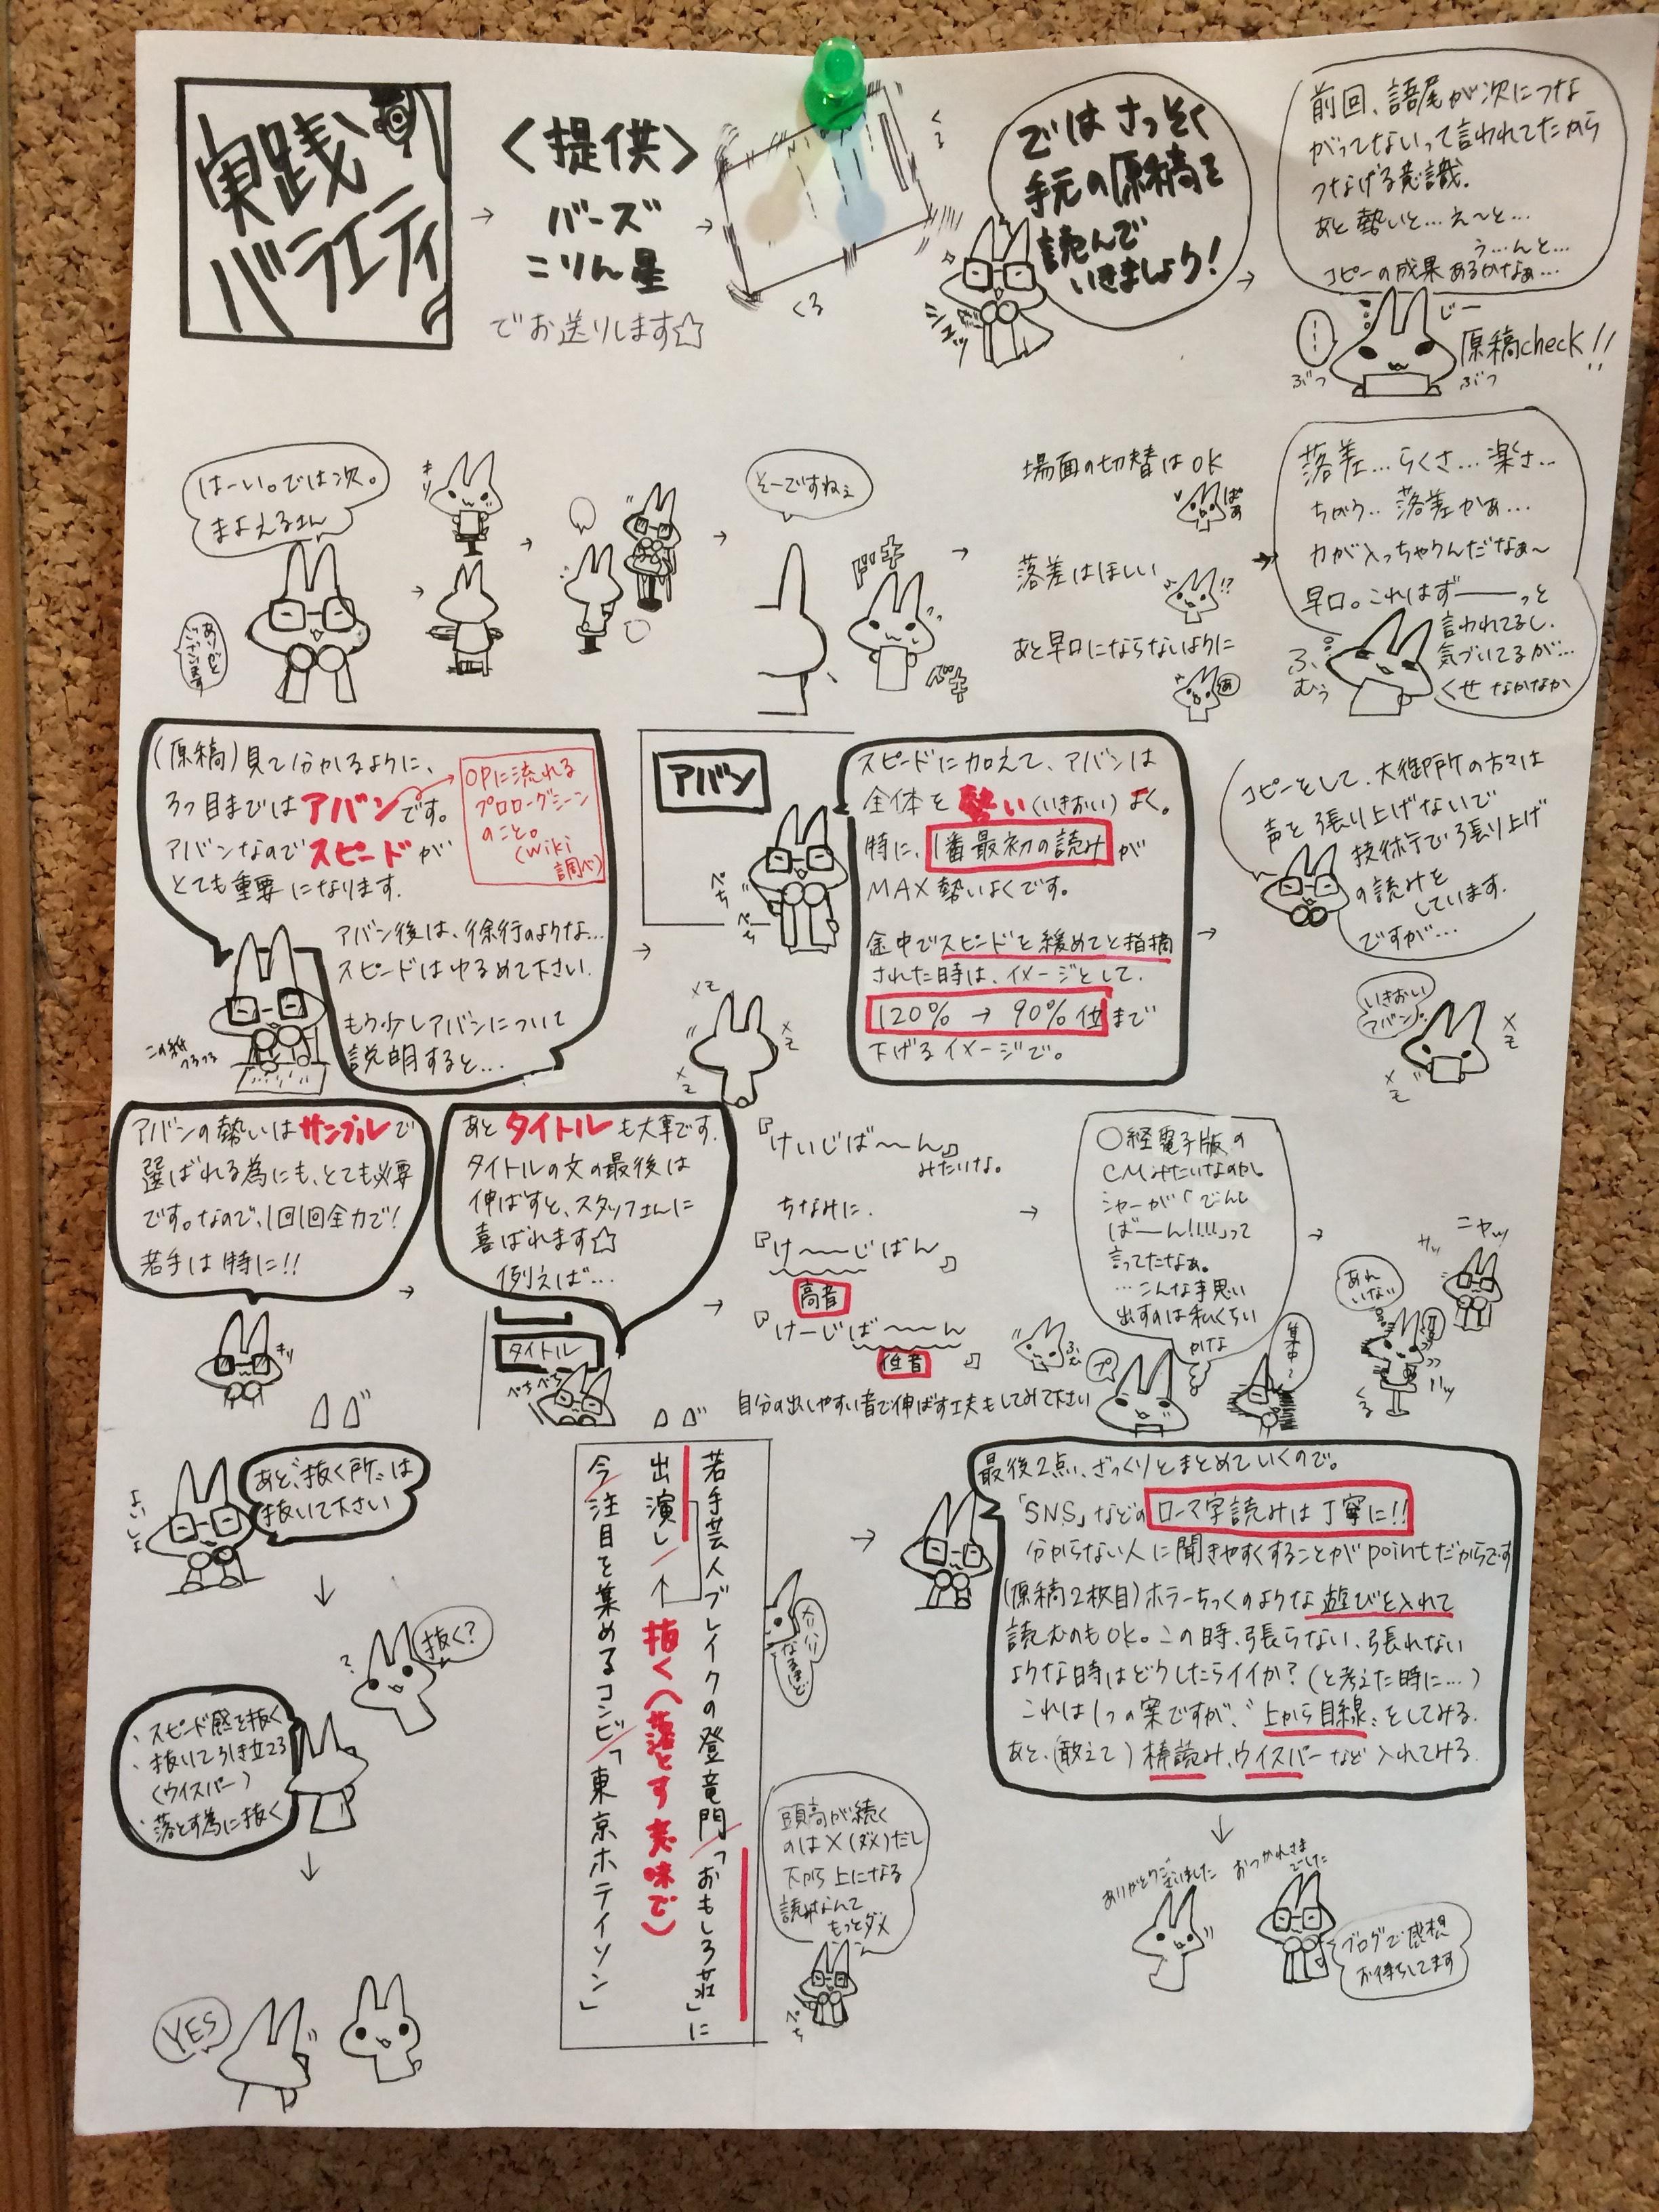 実践
バラエティ
<提供>
バーズ
こりん星
でお送りします☆
くる
くる
ではさっそく
手元の原稿を
読んで
いきましょう!
前回、語尾が次につな
がってないって言われてたから
つなげる意識.
あと勢いと…え〜と…
う…んと…
コピーの成果あるかなぁ…
じー
原稿check!!
ぶつ
ぶつ
はーい。ではは次。
まよえるさん
ありがと
うございます
キリ
そーですねぇ
ドキ
ドキ
場面の切替はOK
ぱぁ
落差はほしい
!?
あと早口にならないように
あ
落差…らくさ…楽さ…
ちがう..落差かぁ…
力が入っちゃうんだなぁ〜
早口。これはず――っと
言われてるし.
気づいてるが…
くせ なかなか
ふ
むぅ
(原稿)見て分かるように、
3つ目まではアバンです。
アバンなのでスピードが
とても重要になります.
OPに流れる
プロローグシーン
のこと。
(wiki
調べ)
アバン後は、徐行のような…
スピードはゆるめて下さい.
もう少しアバンについて
説明すると…
この紙
つるつる
アバン
ぺち
ぺち
スピードに加えて、アバンは
全体を勢い(いきおい)よく。
特に、1番最初の読みが
MAX勢いよくです。
途中でスピードを緩めてと指摘
された時は、イメージとして.
120% → 90%位まで
下げるイメージで。
メモ
メモ
メモ
コピーとして、大御所の方々は
声を張り上げないで
技術で張り上げ
の読みを
しています.
ですが…
いきおい
アバン
メモ
メモ
アバンの勢いはサンプルで
選ばれる為にも、とても必要
です。なので、1回1回全力で!
若手は特に!!
キリ
あとタイトルも大事です.
タイトルの文の最後は
伸ばすと、スタッフさんに
喜ばれます☆
例えば…
タイトル
ぺちぺち
『けいじば〜〜ん』
みたいな。
ちなみに.
『け〜〜じばん』
高音
『けーじば〜〜ん』
低音
自分の出しやすい音で伸ばす工夫もしてみて下さい
ふむ
〇経電子版の
CMみたいなのか。
シャーが「でんし
ば―ん!!!!」って
言ってたなぁ。
…こんな事思い
出すのは私くらい
かな
プ
集中〜
あれ
いない
サッ
ニヤッ
くる
あと、"抜く所"は
抜いて下さい
よいしょ
抜く?
?
・スピード感を抜く
・抜いて引き立てる
(ウイスパー)
・落とす為に抜く
YES
若手芸人ブレイクの登竜門/「おもしろ荘」に
出演し/
抜く(落とす意味で)
今/注目を集めるコンビ/「東京ホテイソン」
なるほど
頭高が続く
のは×(ダメ)だし
下から上になる
読みなんて
もっとダメ
ぺち
最後2点、ざっくりとまとめていくので。
「SNS」などのローマ字読みは丁寧に!!
分からない人に聞きやすくすることがpointだからです
(原稿2枚目)ホラーちっくのような遊びを入れて
読むのもOK。この時、張らない、張れない
ような時はどうしたらイイか?(と考えた時に…)
これは1つの案ですが、"上から目線"をしてみる.
あと、(敢えて)棒読み、ウイスパーなど入れてみる.
ありがとうございました
おつかれさま
でした
ブログで感想
お待ちしてます